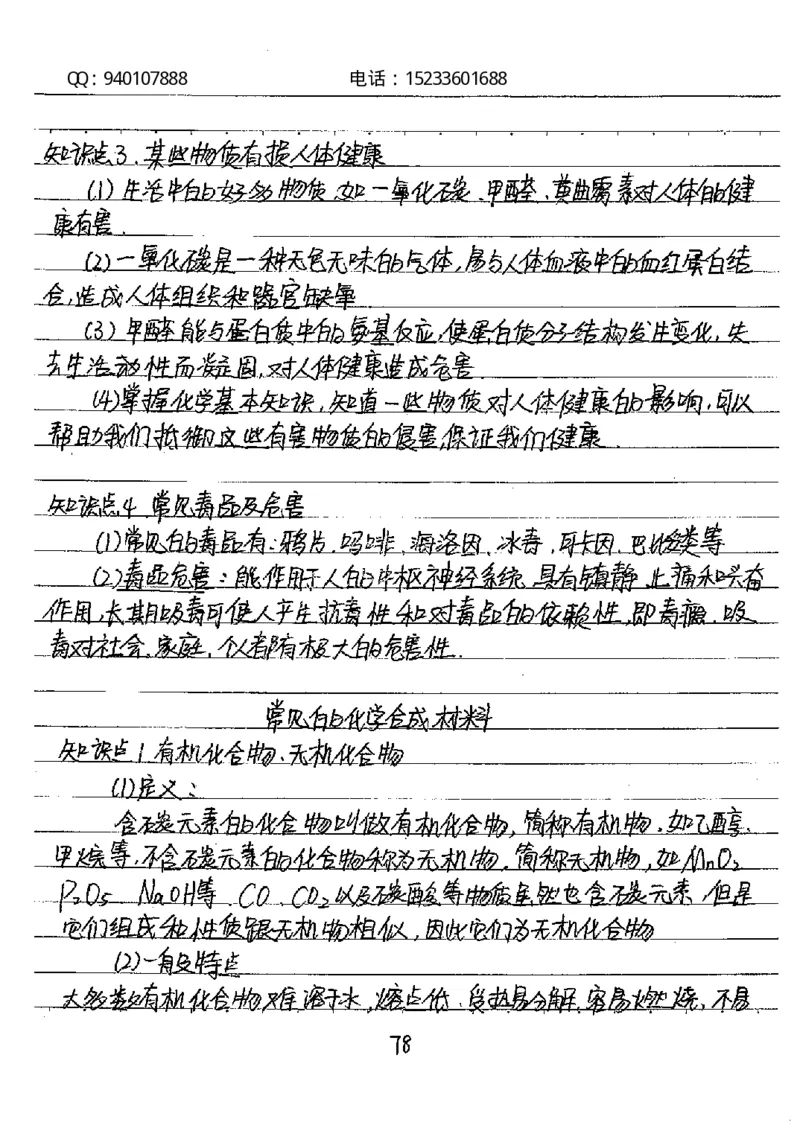 QQ：940107888 电话：15233601688
知识点3、某些物质有损人体健康
(1) 生活中的好多物质,如一氧化碳、甲醛、黄曲霉素对人体的健
康有害.
(2)一氧化碳是一种无色无味的气体,易与人体血液中的血红蛋白结
合,造成人体组织和器官缺氧.
(3) 甲醛能与蛋白质中的氨基反应,使蛋白质分子结构发生变化,失
去生活动性而凝固,对人体健康造成危害.
(4)掌握化学基本知识,知道一些物质对人体健康的影响,可以
帮助我们抵御这些有害物质的侵害,保证我们健康.
知识点4 常见毒品及危害
(1)常见的毒品有:鸦片、吗啡、海洛因、冰毒、可卡因、巴比妥类等
(2)毒品危害:能作用于人的中枢神经系统,具有镇静、止痛和兴奋
作用,长期吸毒可使人产生抗毒性和对毒品的依赖性,即毒瘾.吸
毒对社会、家庭、个人都有极大的危害性.
常见的化学合成材料
知识点1 有机化合物、无机化合物
(1)定义:
含碳元素的化合物叫做有机化合物,简称有机物.如乙醇、
甲烷等,不含碳元素的化合物称为无机物.简称无机物,如MnO₂
P₂O₅ NaOH等.CO、CO₂以及碳酸等物质虽然也含碳元素,但是
它们组成和性质跟无机物相似,因此它们为无机化合物
(2)一般特点
大多数有机化合物难溶于水,熔点低、受热易分解、容易燃烧、不易
78